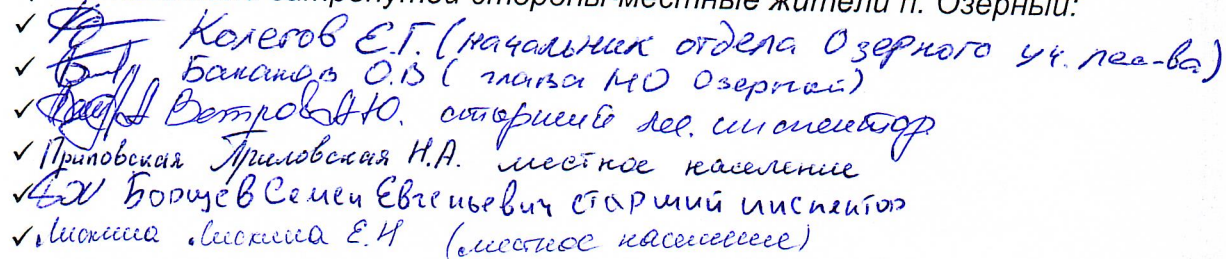 затронутой стороны-местные жители п. Озерный:
✓ Колегов Е.Г. (начальник отдела Озерного уч. лес-ва)
✓ Баканов О.В (глава МО Озерный)
✓ Ветров А.Ю. старший лес. инспектор
✓ Приловская Приловская Н.А. местное население
✓ Борщев Семен Евгеньевич старший инспектор
✓ Е.Н (местное население)